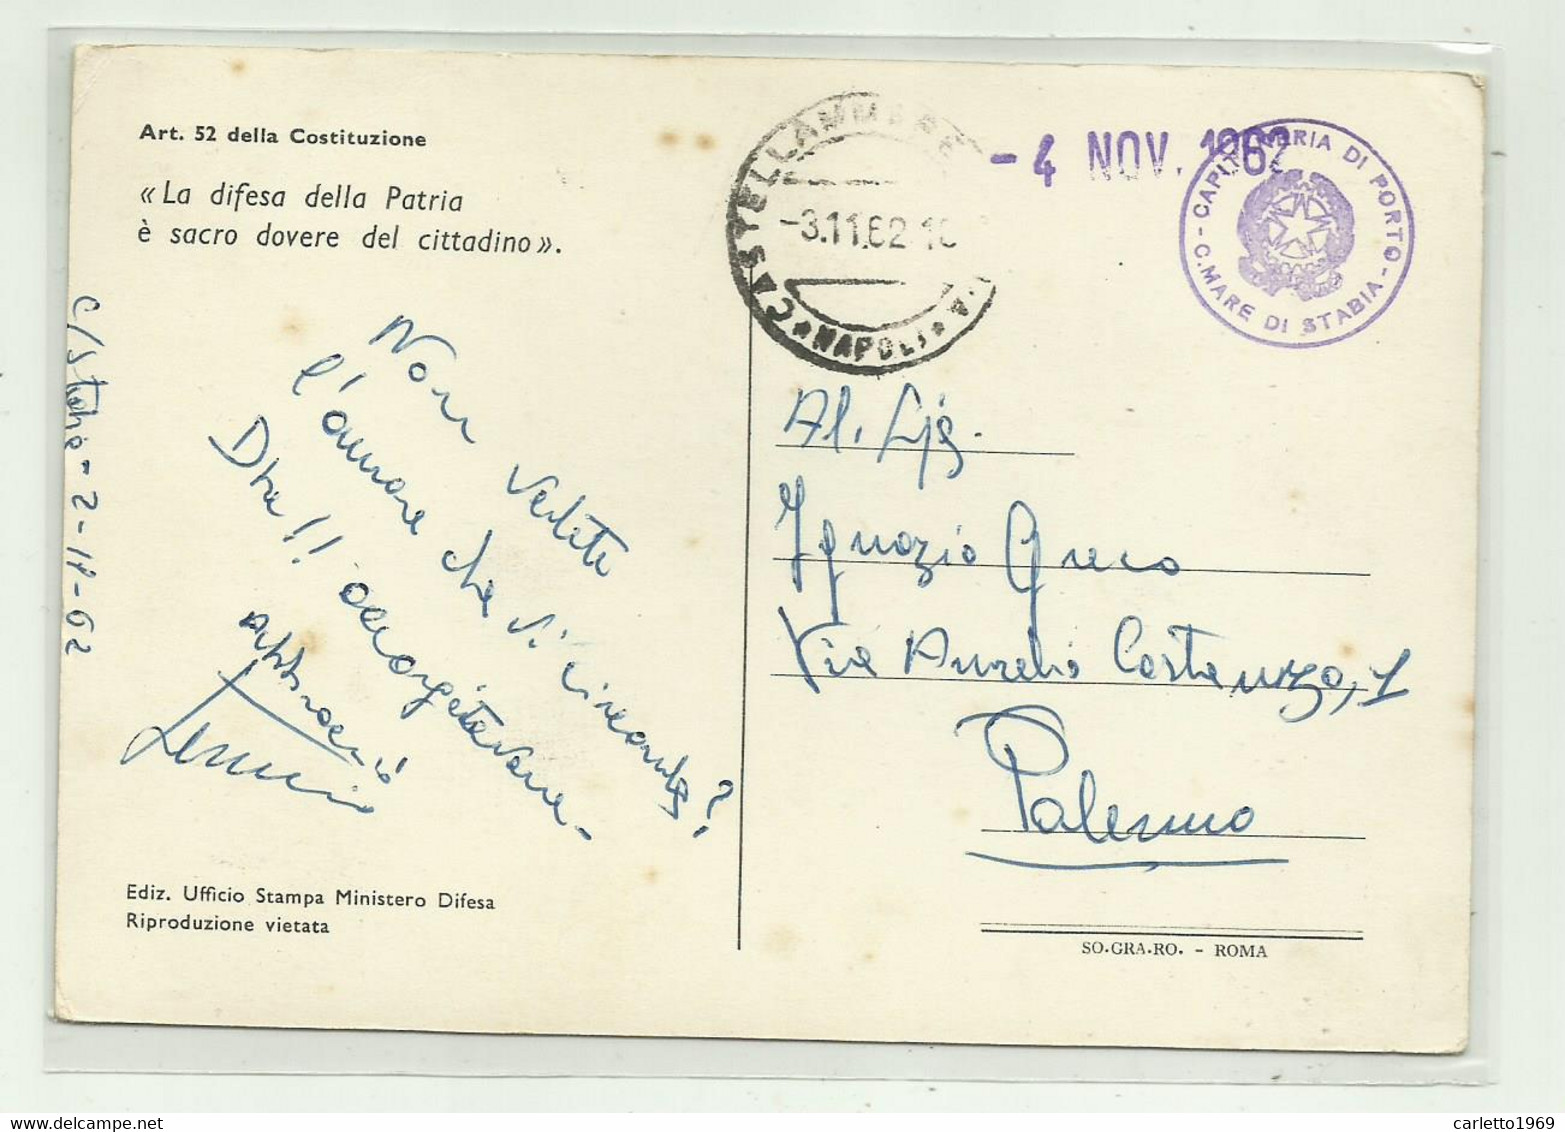 Art. 52 della Costituzione
« La difesa della Patria
è sacro dovere del cittadino ».
C/Stabia - 2-11-62
Non vedete
l'amore che vi circonda?
Dte!! accorgetevene-
abbracci
Ediz. Ufficio Stampa Ministero Difesa
Riproduzione vietata
CASTELLAMMARE
-3.11.62
★ NAPOLI ★
-4 NOV. 1962
CAPITANERIA DI PORTO
- C.MARE DI STABIA -
Al. Sig.
Ignazio Greco
Via Aurelio Costanzo, 1
Palermo
SO.GRA.RO. - ROMA
carletto1969